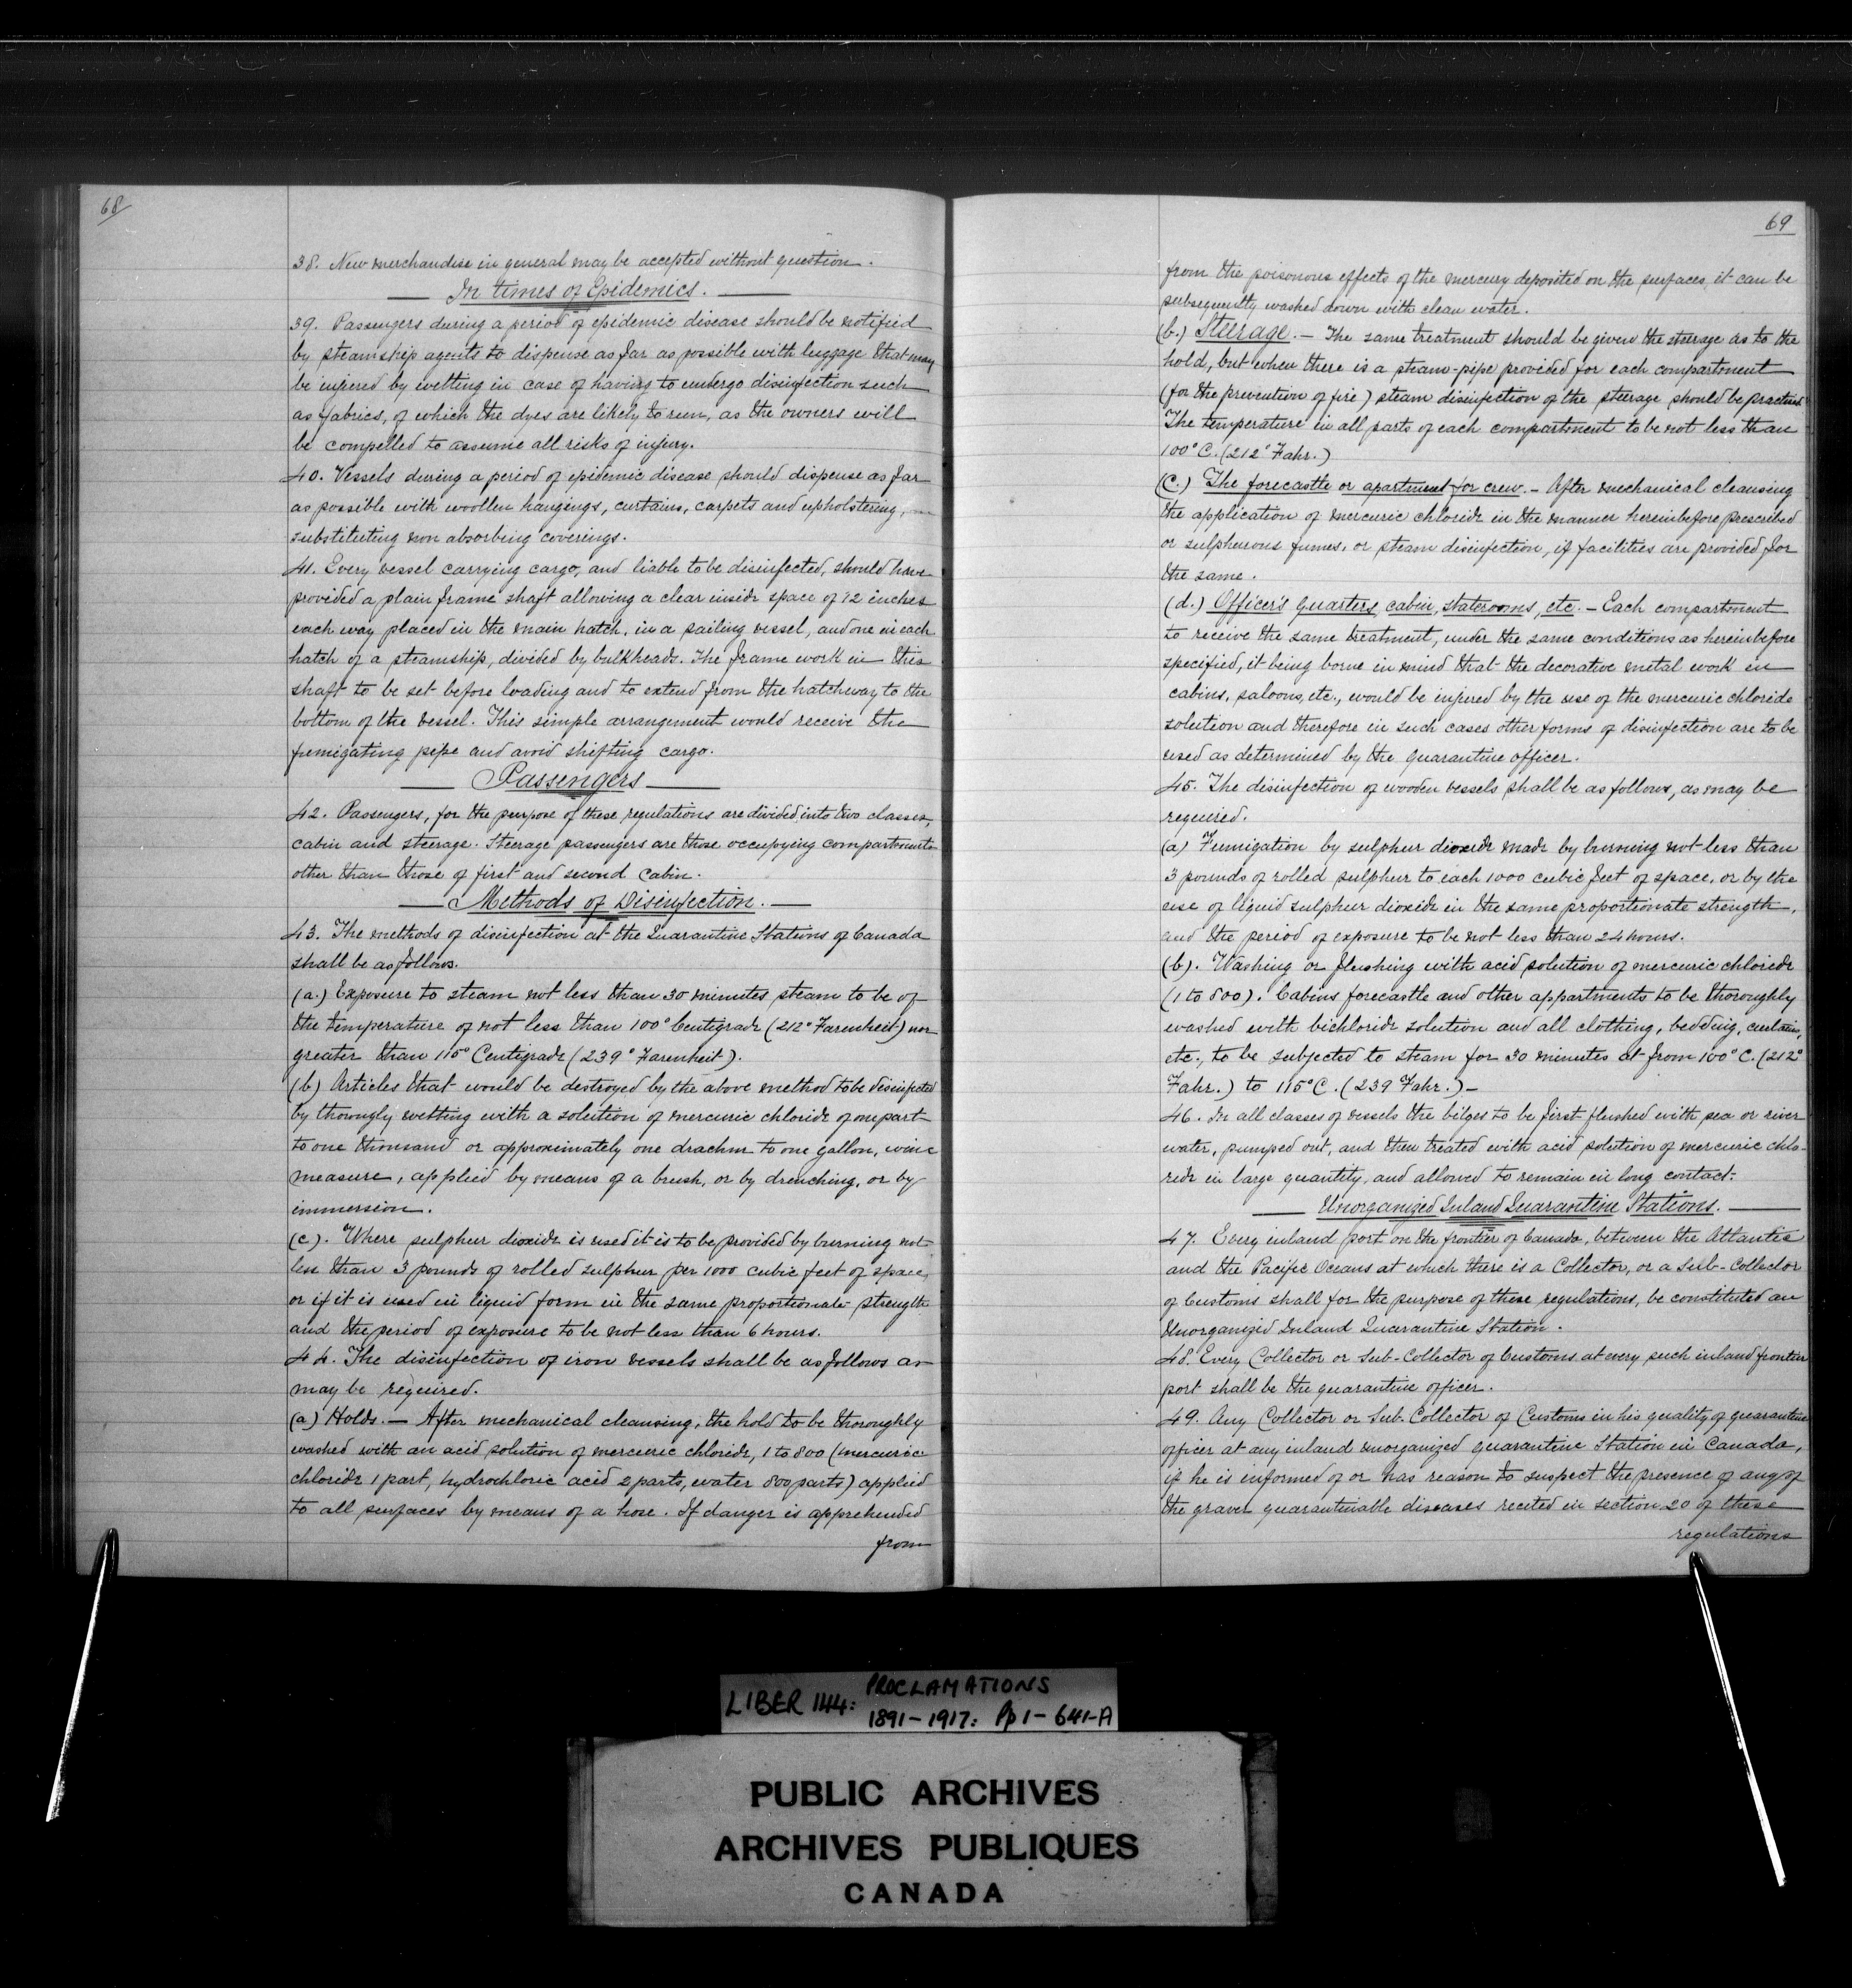 68
38. New merchandise in general may be accepted without question.
In times of Epidemics.
39. Passengers during a period of epidemic disease should be notified
by steamship agents to dispense as far as possible with luggage that may
be injured by wetting in case of having to undergo disinfection such
as fabrics, of which the dyes are likely to run, as the owners will
be compelled to assume all risks of injury.
40. Vessels during a period of epidemic disease should dispense as far
as possible with woollen hangings, curtains, carpets and upholstering,
substituting non absorbing coverings.
41. Every vessel carrying cargo, and liable to be disinfected, should have
provided a plain frame shaft allowing a clear inside space of 12 inches
each way placed in the main hatch, in a sailing vessel, and one in each
hatch of a steamship, divided by bulkheads. The frame work in this
shaft to be set before loading and to extend from the hatchway to the
bottom of the vessel. This simple arrangement would receive the
fumigating pipe and avoid shifting cargo.
Passengers
42. Passengers, for the purpose of these regulations are divided into two classes,
cabin and steerage. Steerage passengers are those occupying compartments
other than those of first and second cabin.
Methods of Disinfection.
43. The methods of disinfection at the Quarantine Stations of Canada
shall be as follows.
(a.) Exposure to steam not less than 30 minutes steam to be of
the temperature of not less than 100° Centigrade (212° Farenheit) nor
greater than 115° Centigrade (239° Farenheit).
(b) Articles that would be destroyed by the above method to be disinfected
by thorougly wetting with a solution of mercuric chloride of one part
to one thousand or approximately one drachm to one gallon, wine
measure, applied by means of a brush, or by drenching, or by
immersion.
(c). Where sulphur dioxide is used it is to be provided by burning not
less than 3 pounds of rolled sulphur per 1000 cubic feet of space,
or if it is used in liquid form in the same proportionate strength
and the period of exposure to be not less than 6 hours.
44. The disinfection of iron vessels shall be as follows as
may be required.
(a) Holds. — After mechanical cleansing, the hold to be thoroughly
washed with an acid solution of mercuric chloride, 1 to 800 (mercuric
chloride 1 part, hydrochloric acid 2 parts, water 800 parts) applied
to all surfaces by means of a hose. If danger is apprehended
from
69
from the poisonous effects of the mercury deposited on the surfaces, it can be
subsequently washed down with clean water.
(b.) Steerage. — The same treatment should be given the steerage as to the
hold, but when there is a steam-pipe provided for each compartment
(for the prevention of fire) steam disinfection of the steerage should be practised
The temperature in all parts of each compartment to be not less than
100° C. (212° Fahr.)
(c.) The forecastle or apartment for crew. — After mechanical cleansing
the application of mercuric chloride in the manner hereinbefore prescribed
or sulphurous fumes, or steam disinfection, if facilities are provided for
the same.
(d.) Officer's quarters, cabin, staterooms, etc. — Each compartment
to receive the same treatment, under the same conditions as hereinbefore
specified, it being borne in mind that the decorative metal work in
cabins, saloons, etc., would be injured by the use of the mercuric chloride
solution and therefore in such cases other forms of disinfection are to be
used as determined by the quarantine officer.
45. The disinfection of wooden vessels shall be as follows, as may be
required.
(a) Fumigation by sulphur dioxide made by burning not less than
3 pounds of rolled sulphur to each 1000 cubic feet of space, or by the
use of liquid sulphur dioxide in the same proportionate strength,
and the period of exposure to be not less than 24 hours.
(b). Washing or flushing with acid solution of mercuric chloride
(1 to 800). Cabins forecastle and other appartments to be thoroughly
washed with bichloride solution and all clothing, bedding, curtains,
etc., to be subjected to steam for 30 minutes at from 100° C. (212°
Fahr.) to 115° C. (239 Fahr.) —
46. In all classes of vessels the bilges to be first flushed with sea or river
water, pumped out, and then treated with acid solution of mercuric chlo-
ride in large quantity, and allowed to remain in long contact.
Unorganized Inland Quarantine Stations.
47. Every inland port on the frontier of Canada, between the Atlantic
and the Pacific Oceans at which there is a Collector, or a Sub-Collector
of Customs shall for the purpose of these regulations, be constituted an
Unorganized Inland Quarantine Station.
48. Every Collector or Sub-Collector of Customs at every such inland frontier
port shall be the quarantine officer.
49. Any Collector or Sub-Collector of Customs in his quality of quarantine
officer at any inland unorganized quarantine Station in Canada,
if he is informed of or has reason to suspect the presence of any of
the graver quarantinable diseases recited in section 20 of these
regulations
LIBER 144: PROCLAMATIONS
1891-1917: Pp 1-641-A
PUBLIC ARCHIVES
ARCHIVES PUBLIQUES
CANADA